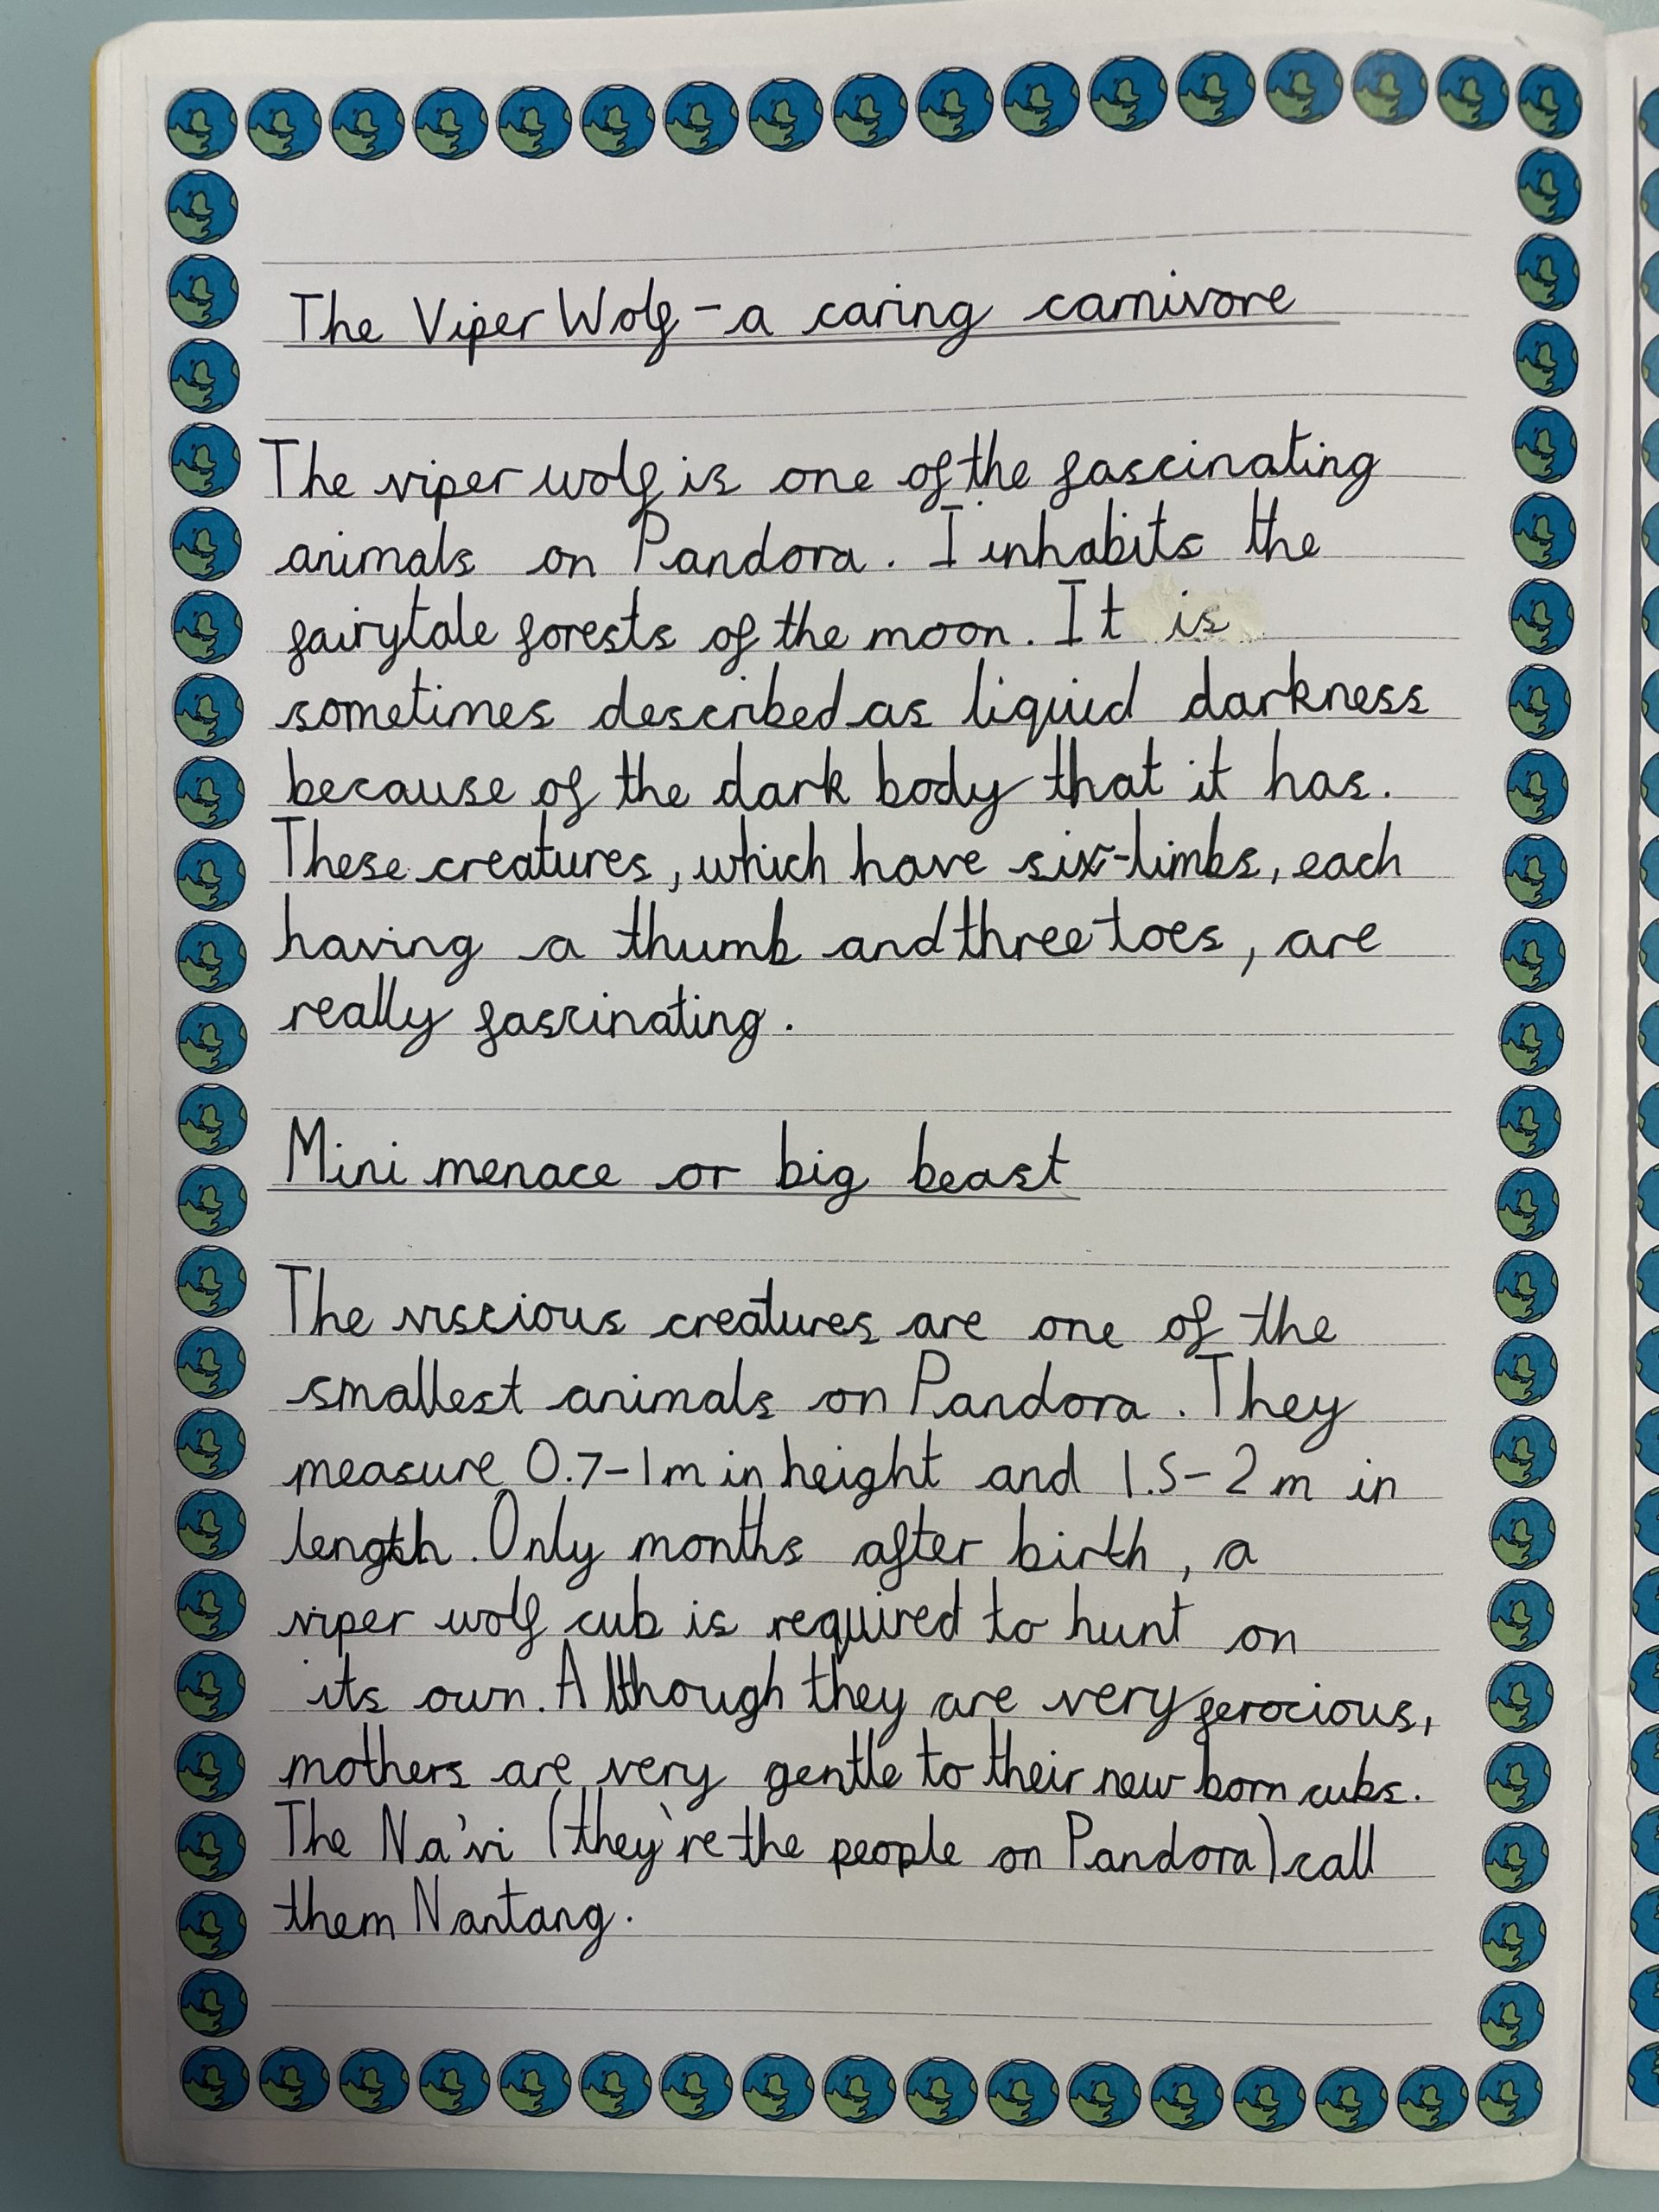 The Viper Wolf - a caring carnivore
The viper wolf is one of the fascinating
animals on Pandora. I inhabits the
fairytale forests of the moon. It is
sometimes described as liquid darkness
because of the dark body that it has.
These creatures, which have six-limbs, each
having a thumb and three toes, are
really fascinating.
Mini menace or big beast
The viscious creatures are one of the
smallest animals on Pandora. They
measure 0.7-1m in height and 1.5-2m in
length. Only months after birth, a
viper wolf cub is required to hunt on
its own. Although they are very ferocious,
mothers are very gentle to their new born cubs.
The Na'vi (they're the people on Pandora) call
them Nantang.